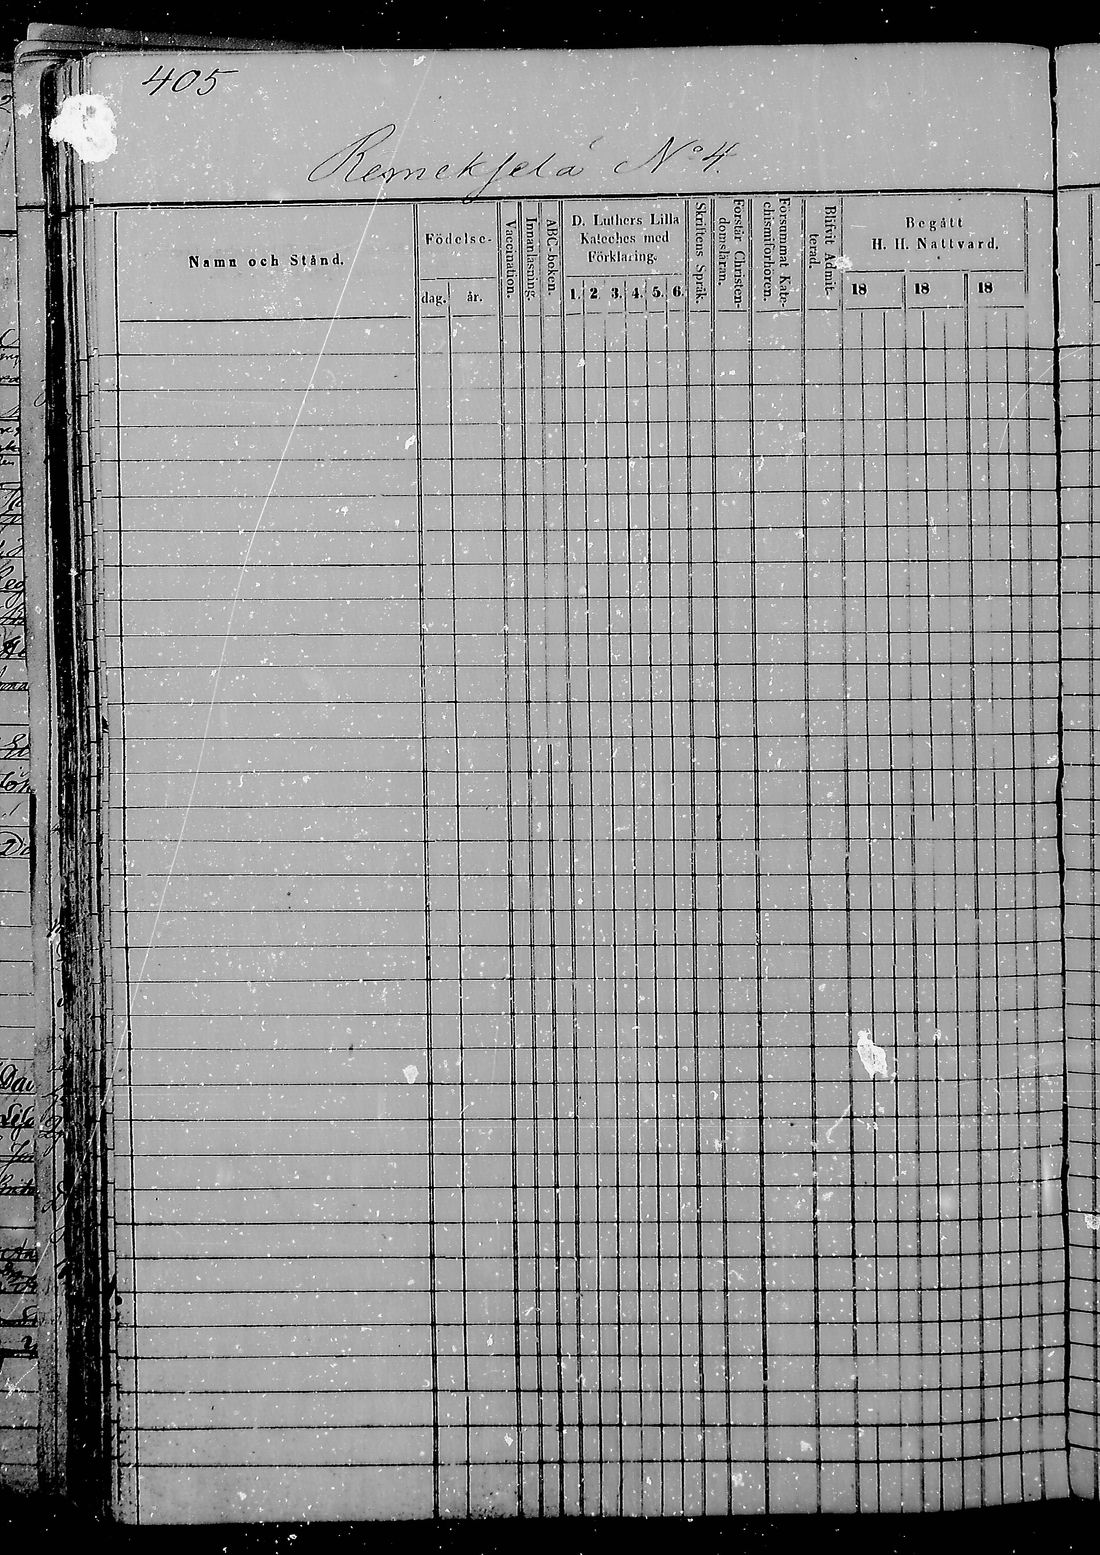 405
Remekjelä No 4.
Namn och Stånd.
Födelse-
dag. år.
Vaccination.
Innanläsning.
ABC-boken.
D. Luthers Lilla
Kateches med
Förklaring.
1. 2. 3. 4. 5. 6.
Skriftens Språk.
Förstår Christen-
domsläran.
Försummat Kate-
chismiförhören.
Blifvit Admit-
terad.
Begått
H. H. Nattvard.
18 18 18